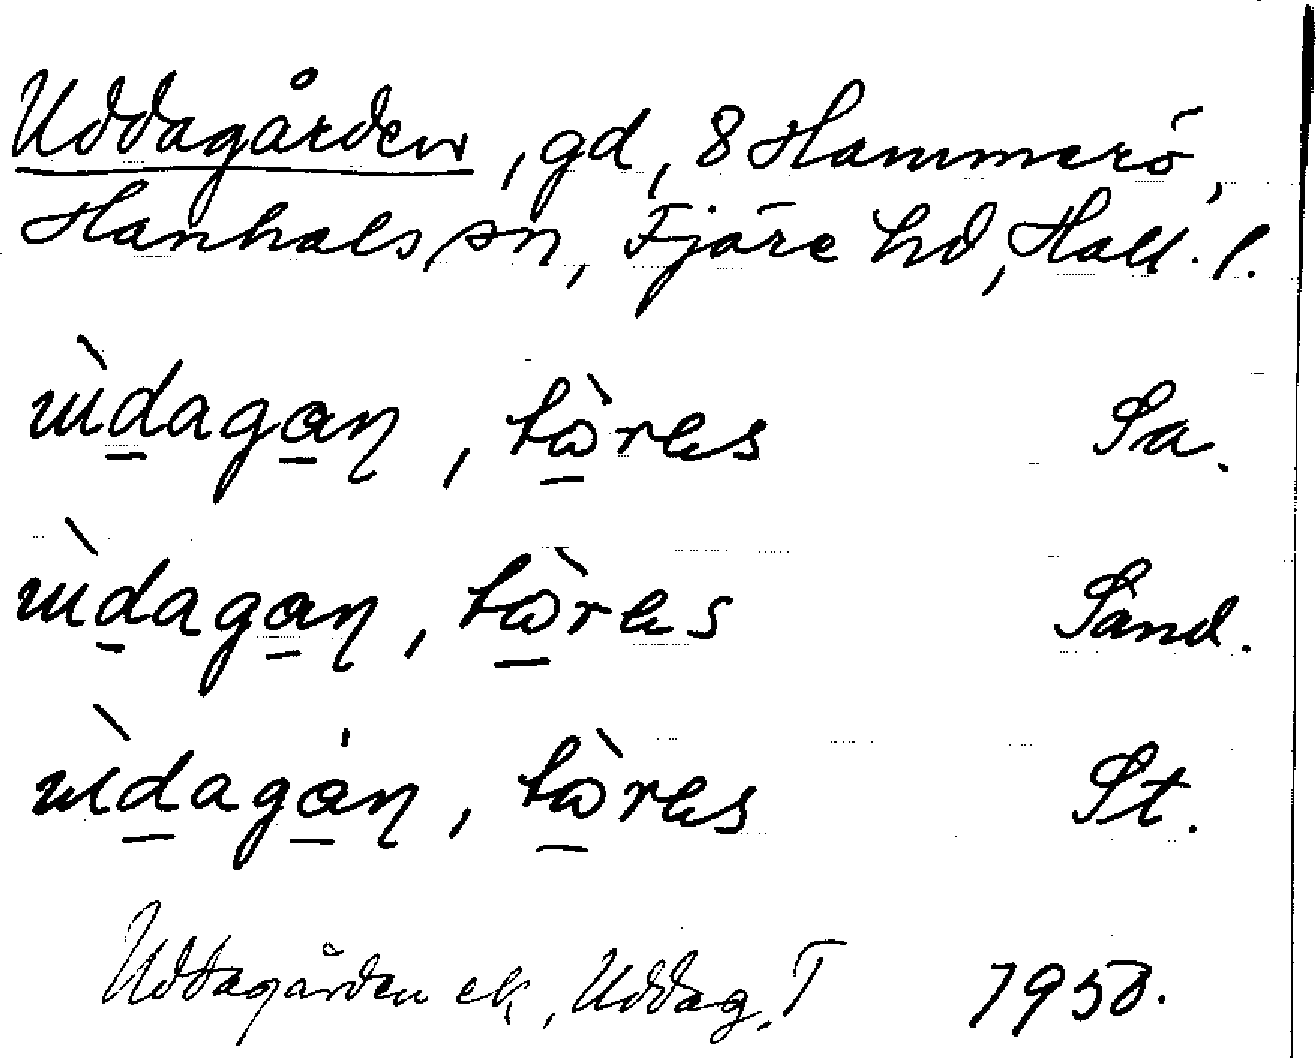 Uddagården, gd, 8 Hammerö,
Hanhals sn, Fjäre hd, Hall. l.
ɯ̀dagaɳ, tɷ̀res Sa.
ɯ̀dagaɳ, tɷ̀res Sand.
ɯ̀dagáɳ, tɷ̀res St.
Uddagården ek, Uddag. T 1950.